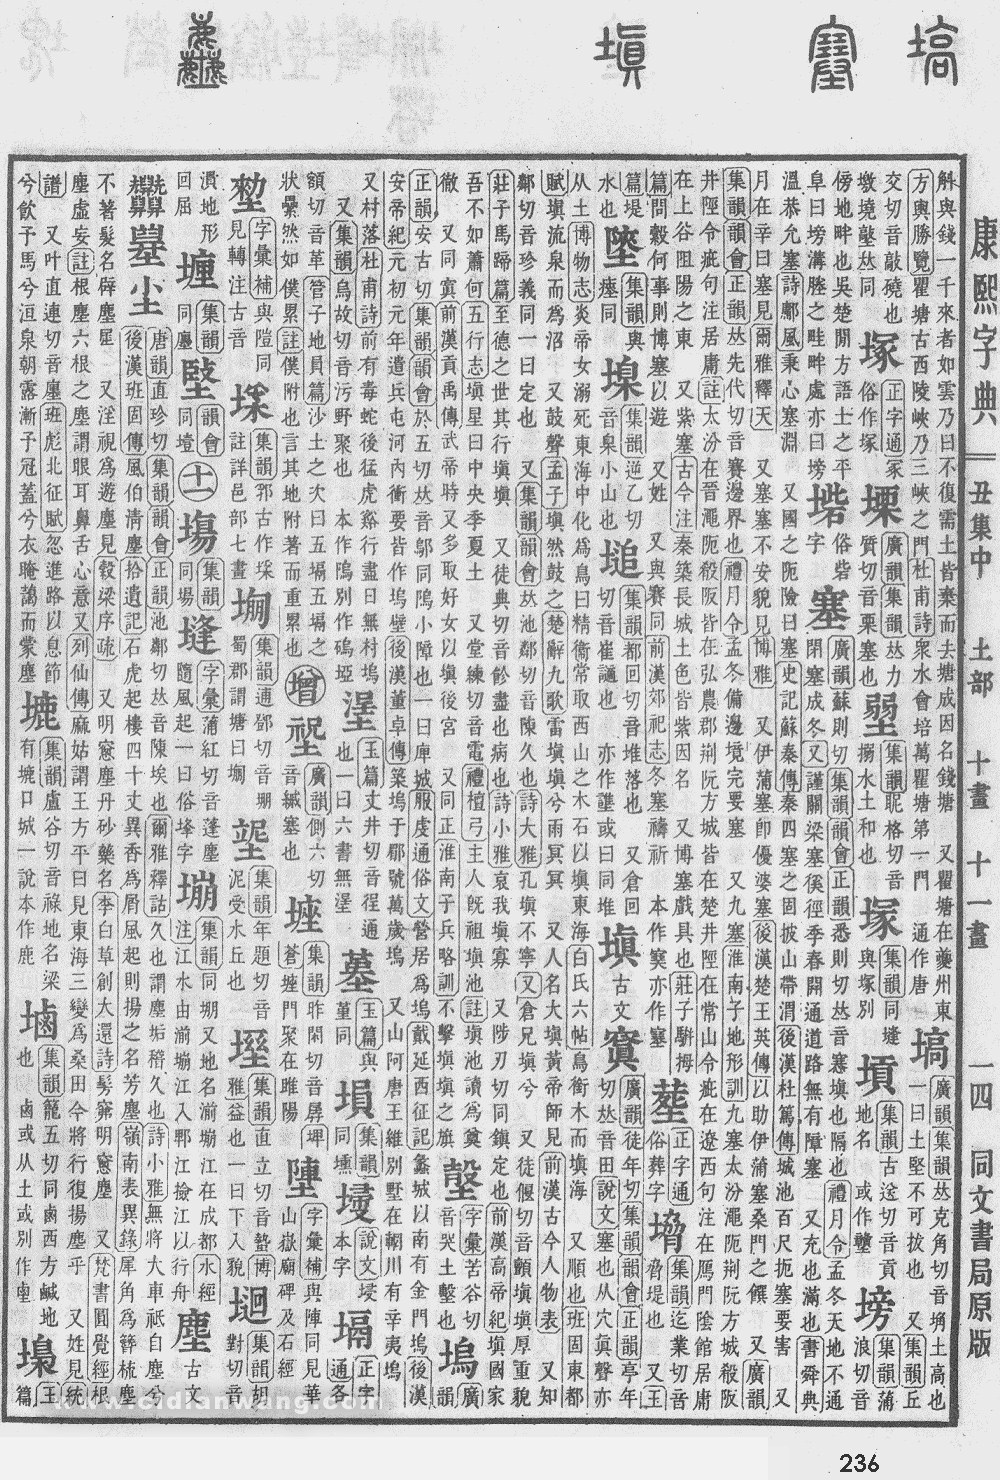 康熙字典
丑集中 土部 十畫 十一畫
一四 同文書局原版
斛與錢一千來者如雲乃曰不復需土皆棄而去塘成因名錢塘 又瞿塘在夔州東
方輿勝覽瞿塘古西陵峽乃三峽之門杜甫詩衆水會培萬瞿塘第一門 通作唐
塙 廣韻集韻𠀤克角切音埆土高也 一曰土堅不可拔也 又集韻丘
交切音敲磽也
塚 正字通冢俗作塚
塛 廣韻集韻𠀤力質切音栗塞也
集韻昵格切音搦水土和也
塜 與塚別
集韻古送切音貢地名
塝 集韻蒲浪切音
傍地畔也吳楚閒方語土之平阜曰塝溝塍之畦畔處亦曰塝
塔 俗字
塞 廣韻蘇則切集韻韻會正韻悉則切𠀤音塞塡也隔也禮月令孟冬天地不通
閉塞成冬又謹關梁塞徯徑季春開通道路無有障塞 又充也滿也書舜典
溫恭允塞詩鄘風秉心塞淵 又國之阨險曰塞史記蘇秦傳秦四塞之固披山帶渭後漢杜篤傳城池百尺扼塞要害 又
月在辛曰塞見爾雅釋天 又塞塞不安貌見博雅 又伊蒲塞卽優婆塞後漢楚王英傳以助伊蒲塞桑門之饌 又廣韻
集韻韻會正韻𠀤先代切音賽邊界也禮月令孟冬備邊境完要塞 又九塞淮南子地形訓九塞太汾澠阨荆阮方城殽阪
井陘令疵句注居庸註太汾在晉澠阨殽阪皆在弘農郡荊阮方城皆在楚井陘在常山令疵在遼西句注在鴈門陰館居庸
在上谷阻陽之東 又紫塞古今注秦築長城土色皆紫因名 又博塞戲具也莊子騈拇
篇問穀何事則博塞以遊 又姓 又與賽同前漢郊祀志冬塞禱祈 本作𡫳亦作𡨄
塟 正字通俗葬字
集韻迄業切音脅堤也 又玉
篇堤水也
集韻與瘞同
集韻逆乙切音臬小山也
塠 集韻都回切音堆落也 又倉回切音崔讁也
塡 古文窴 廣韻徒年切集韻韻會正韻亭年切𠀤音田說文塞也从穴眞聲亦
从土博物志炎帝女溺死東海中化爲鳥曰精衞常取西山之木石以塡東海白氏六帖鳥銜木而塡海 又順也班固東都
賦塡流泉而爲沼 又鼓聲孟子塡然鼓之楚辭九歌雷塡塡兮雨冥冥 又人名大塡黃帝師見前漢古今人物表 又知
鄰切音珍義同一曰定也 又集韻韻會𠀤池鄰切音陳久也詩大雅孔塡不寧又倉兄塡兮 又徒偃切音顚塡塡厚重貌
莊子馬蹄篇至德之世其行塡塡 又徒典切音餘盡也病也詩小雅哀我塡寡 又陟刃切同鎭定也前漢高帝紀塡國家
吾不如蕭何五行志塡星曰中央季夏土 又堂練切音電禮檀弓主人旣祖塡池註塡池讀爲奠
徹 又同窴前漢貢禹傳武帝時又多取好女以塡後宮 又同正淮南子兵略訓不擊塡塡之旗
字彙苦谷切音哭土墼也
塢 廣韻
正韻安古切集韻韻會於五切𠀤音鄔同隖小障也一曰庳城服虔通俗文營居爲塢戴延西征記蠡城以南有金門塢後漢
安帝紀元初元年遣兵屯河內衝要皆作塢壁後漢董卓傳築塢于郿號萬歲塢 又山阿唐王維別墅在輞川有辛夷塢
又村落杜甫詩前有毒蛇後猛虎谿行盡日無村塢
玉篇丈井切音徎通也一曰六書無
墓 玉篇與堇同
塤 集韻同壎
說文本字
塥 正字通各
額切音革管子地員篇沙土之次曰五塥五塥之狀纍然如僕累註僕附也言其地附著而重累也
增
廣韻側六切音緘塞也
集韻昨閑切音孱坢蒼墟門聚在睢陽
字彙補與陣同見華山嶽廟碑及石經
字彙補與隑同見轉注古音
集韻郛古作垺註詳邑部七畫
塴 集韻逋鄧切音堋蜀郡謂塘曰塴
集韻年題切音泥受水丘也
集韻直立切音蟄博雅益也一曰下入貌
集韻胡對切音
潰地形回屈
廛 集韻同廛
韻會同壹
十一
塲 集韻同場
塳 字彙蒲紅切音蓬塵隨風起一曰俗埄字
集韻同堋又地名湔堋江在成都水經注江水由湔堋江入鄲江撿江以行舟
塵 古文
唐韻直珍切集韻韻會正韻池鄰切𠀤音陳埃也爾雅釋詁久也謂塵垢稽久也詩小雅無將大車祇自塵兮
後漢班固傳風伯淸塵拾遺記石虎起樓四十丈異香爲屑風起則揚之名芳塵嶺南表異錄犀角爲簪梳塵
不著髮名辟塵犀 又淫視爲遊塵見穀梁序疏 又明窻塵丹砂藥名李白草創大還詩髣髴明窻塵 又梵書圓覺經根
塵虛妄註根塵六根之塵謂眼耳鼻舌心意又列仙傳麻姑謂王方平曰見東海三變爲桑田今將行復揚塵乎 又姓見統
譜 又叶直連切音廛班彪北征賦忽進路以息節
兮飲予馬兮洹泉朝露漸予冠蓋兮衣晻藹而蒙塵
集韻盧谷切音祿地名梁有摝口城一說本作鹿
塷 集韻籠五切同鹵西方鹹地也 鹵或从土或別作
玉篇
www.cidianwang.com
236